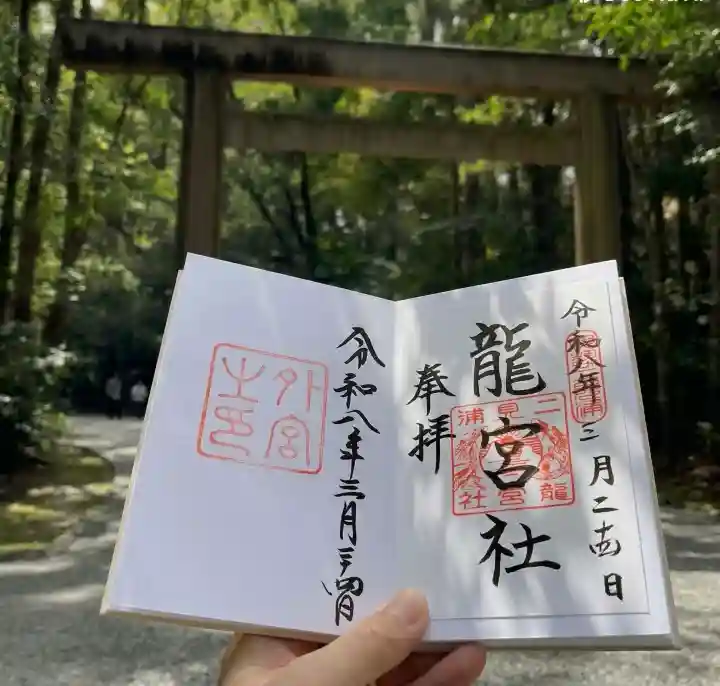 令和八年三月二十四日
龍宮社
奉拝
二見浦
龍宮社
令和八年三月二十四日
外宮之印